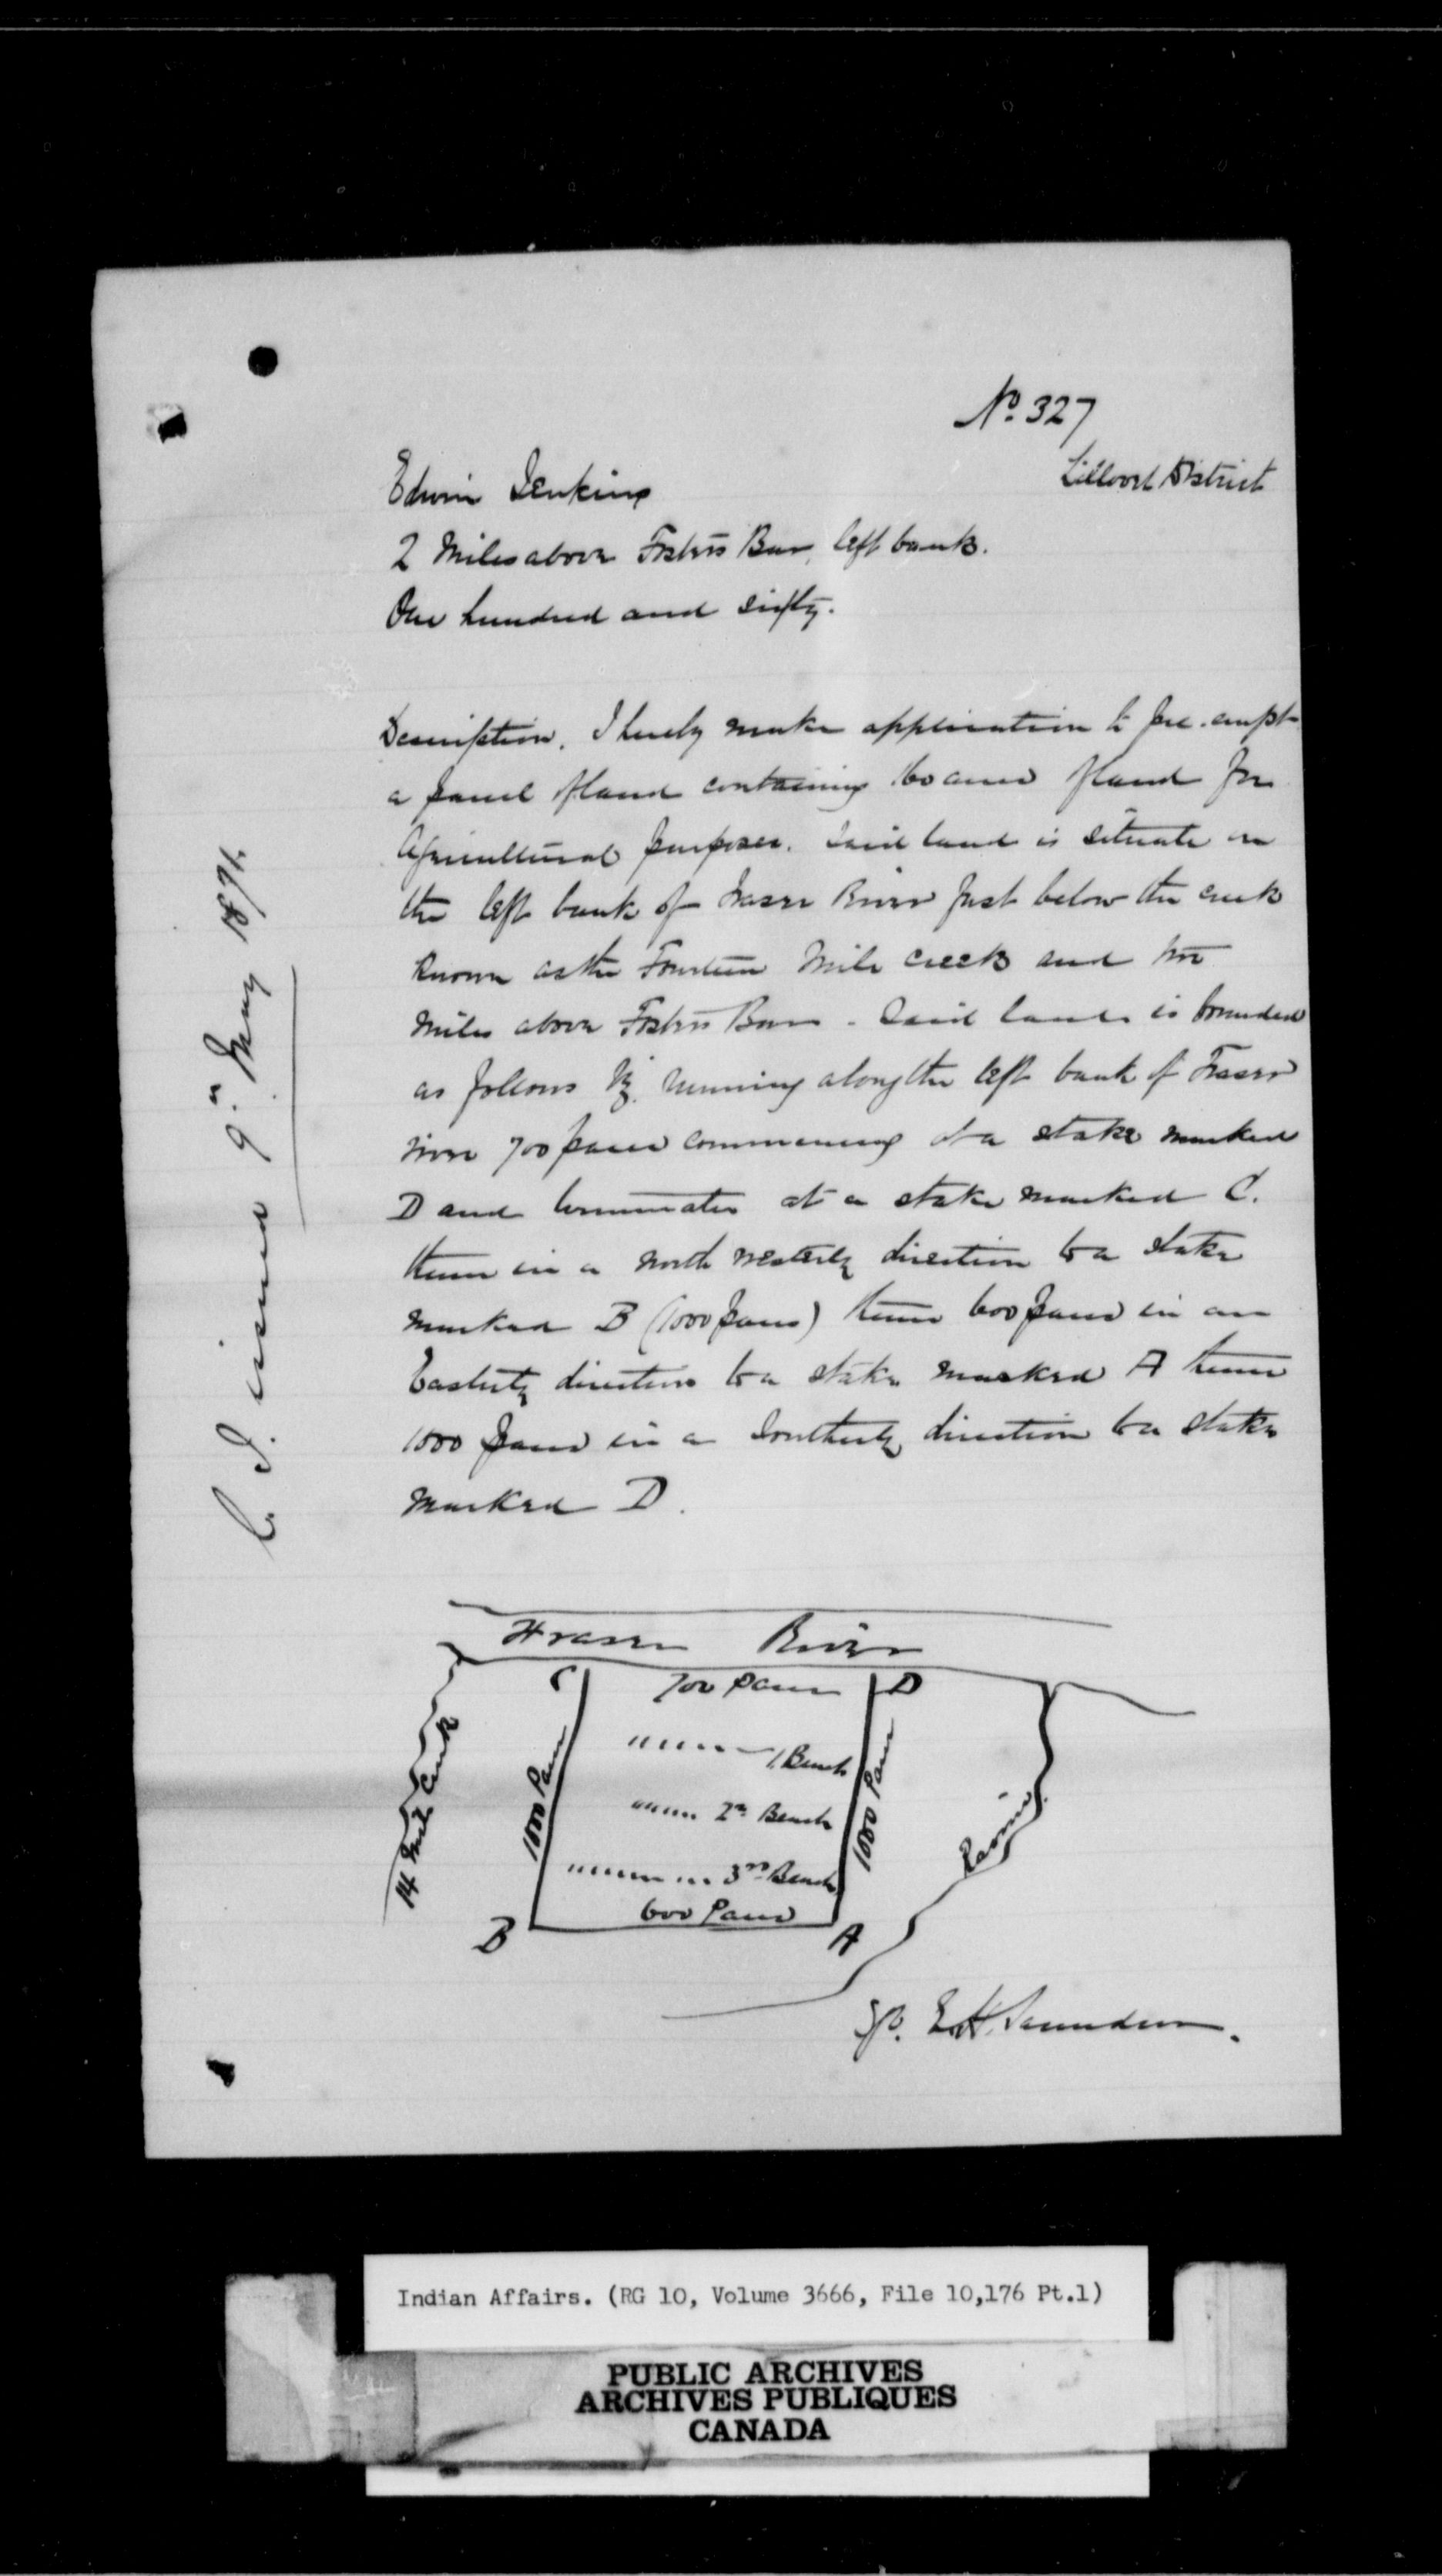 No. 327
Lillooet District
Edwin Jenkins
2 Miles above Fosters Bar, left bank.
One hundred and sixty.
Description. I hereby make application to pre-empt
a parcel of land containing 160 acres of land for
Agricultural purposes. Said land is situate on
the left bank of Fraser River just below the creek
known as the Fourteen Mile creek and two
miles above Fosters Bar - Said land is bounded
as follows viz. running along the left bank of Fraser
river 700 paces commencing at a stake marked
D and terminates at a stake marked C.
thence in a north westerly direction to a stake
marked B (1000 paces) thence 600 paces in an
Easterly direction to a stake marked A thence
1000 paces in a Southerly direction to a stake
marked D.
C. I. issued 9th May 1871.
Fraser River
C 700 paces D
1. Bench
2nd Bench
3rd Bench
600 Paces
1000 Paces
1000 Paces
14 Mile Creek
Ravine
B A
E. H. Saunders.
Indian Affairs. (RG 10, Volume 3666, File 10,176 Pt.1)
PUBLIC ARCHIVES
ARCHIVES PUBLIQUES
CANADA